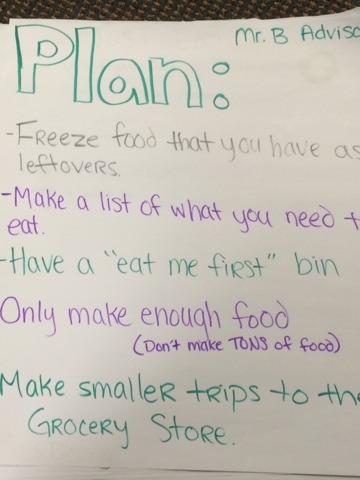 Mr. B Adviso
Plan:
-Freeze food that you have as
leftovers.
-Make a list of what you need t
eat.
-Have a "eat me first" bin
Only make enough food
(Don't make TONS of food)
Make smaller trips to the
Grocery Store.